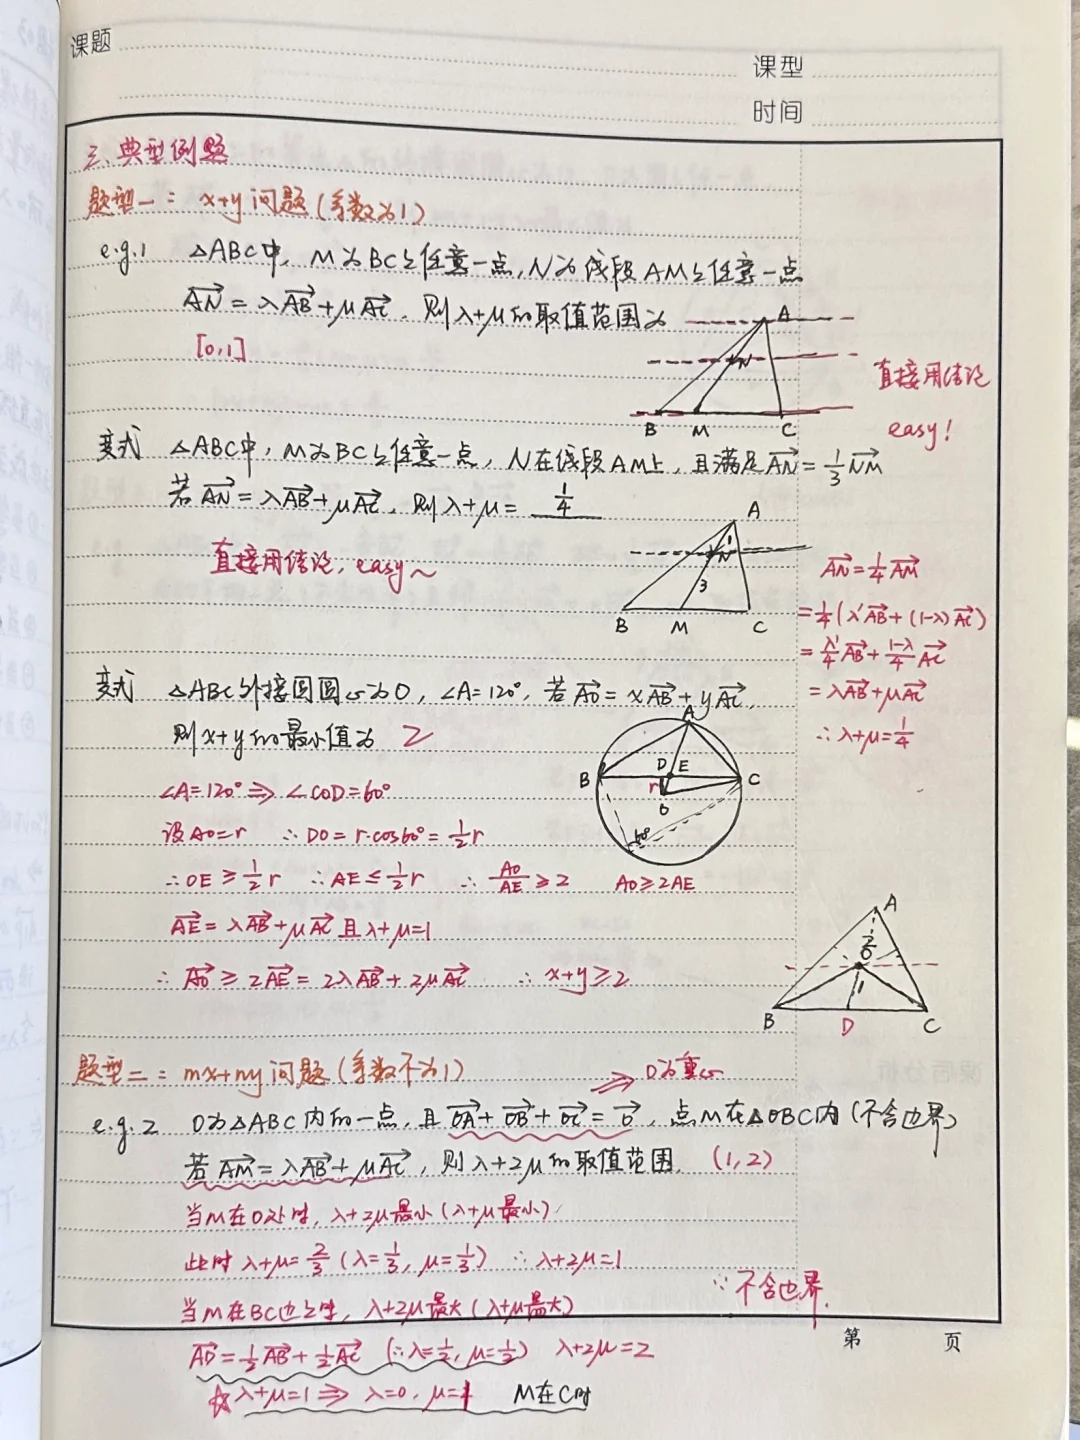 课题
课型
时间
三、典型例题
题型一: x+y问题(系数为1)
e.g.1 △ABC中, M为BC上任意一点, N为线段AM上任意一点
AN→ = λAB→ + μAC→, 则λ+μ的取值范围为
[0,1]
A
N
B M C
直接用结论
easy!
变式 △ABC中, M为BC上任意一点, N在线段AM上, 且满足AN→ = 1/3 NM→
若AN→ = λAB→ + μAC→, 则λ+μ= 1/4
直接用结论, easy~
A
1
N
3
B M C
AN→ = 1/4 AM→
= 1/4(λ'AB→ + (1-λ)AC→)
= λ'/4 AB→ + 1-λ/4 AC→
= λAB→ + μAC→
∴ λ+μ = 1/4
变式 △ABC外接圆圆心为O, ∠A=120°, 若AO→ = xAB→ + yAC→,
则x+y的最小值为 2
A
B D E C
r
O
60°
∠A=120° ⇒ ∠COD=60°
设AO=r ∴ DO=r·cos60°=1/2 r
∴ OE ≥ 1/2 r ∴ AE ≤ 1/2 r ∴ AO/AE ≥ 2 AO≥2AE
AE→ = λAB→ + μAC→ 且λ+μ=1
∴ AO→ ≥ 2AE→ = 2λAB→ + 2μAC→ ∴ x+y≥2
A
2
O
1
B D C
题型二: mx+ny问题(系数不为1)
O为重心
e.g.2 O为△ABC内的一点, 且OA→ + OB→ + OC→ = 0→, 点M在△OBC内(不含边界)
若AM→ = λAB→ + μAC→, 则λ+2μ的取值范围 (1,2)
当M在O处时, λ+2μ最小(λ+μ最小)
此时λ+μ=2/3 (λ=1/3, μ=1/3) ∴ λ+2μ=1
∵ 不含边界.
当M在BC边上时, λ+2μ最大(λ+μ最大)
AD→ = 1/2 AB→ + 1/2 AC→ (∴λ=1/2, μ=1/2) λ+2μ=2
☆ λ+μ=1 ⇒ λ=0, μ=1 M在C时
第 页